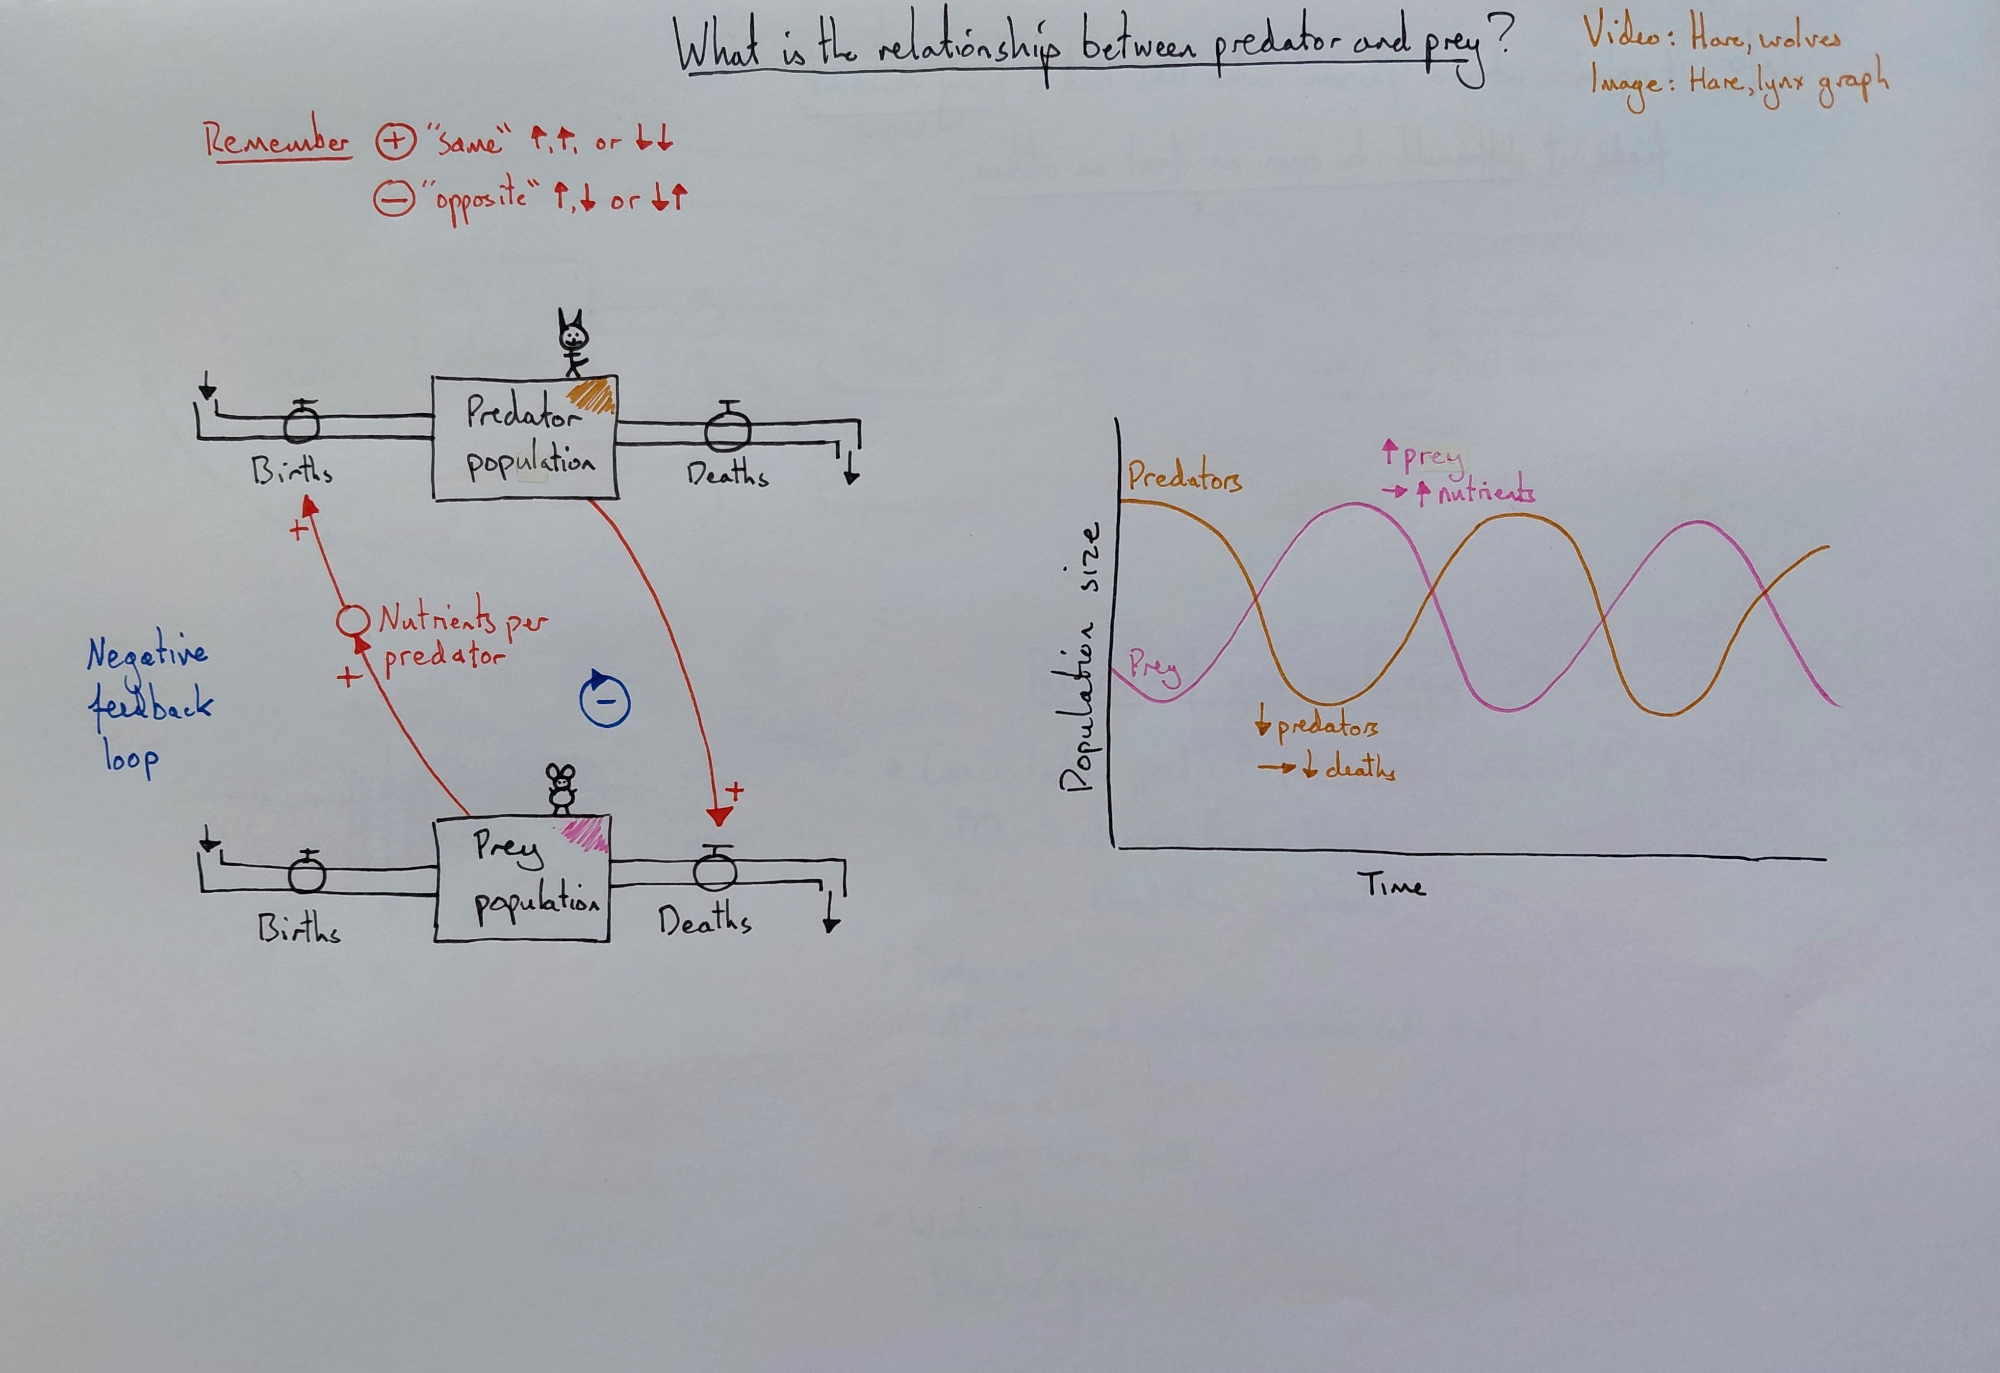 What is the relationship between predator and prey?
Video: Hare, wolves
Image: Hare, lynx graph
Remember + "same" ↑,↑, or ↓↓
− "opposite" ↑,↓ or ↓↑
Predator
population
Births
Deaths
+
Nutrients per
predator
+
Negative
feedback
loop
−
+
Prey
population
Births
Deaths
Population size
Predators
↑ prey
→ ↑ nutrients
Prey
↓ predators
→ ↓ deaths
Time